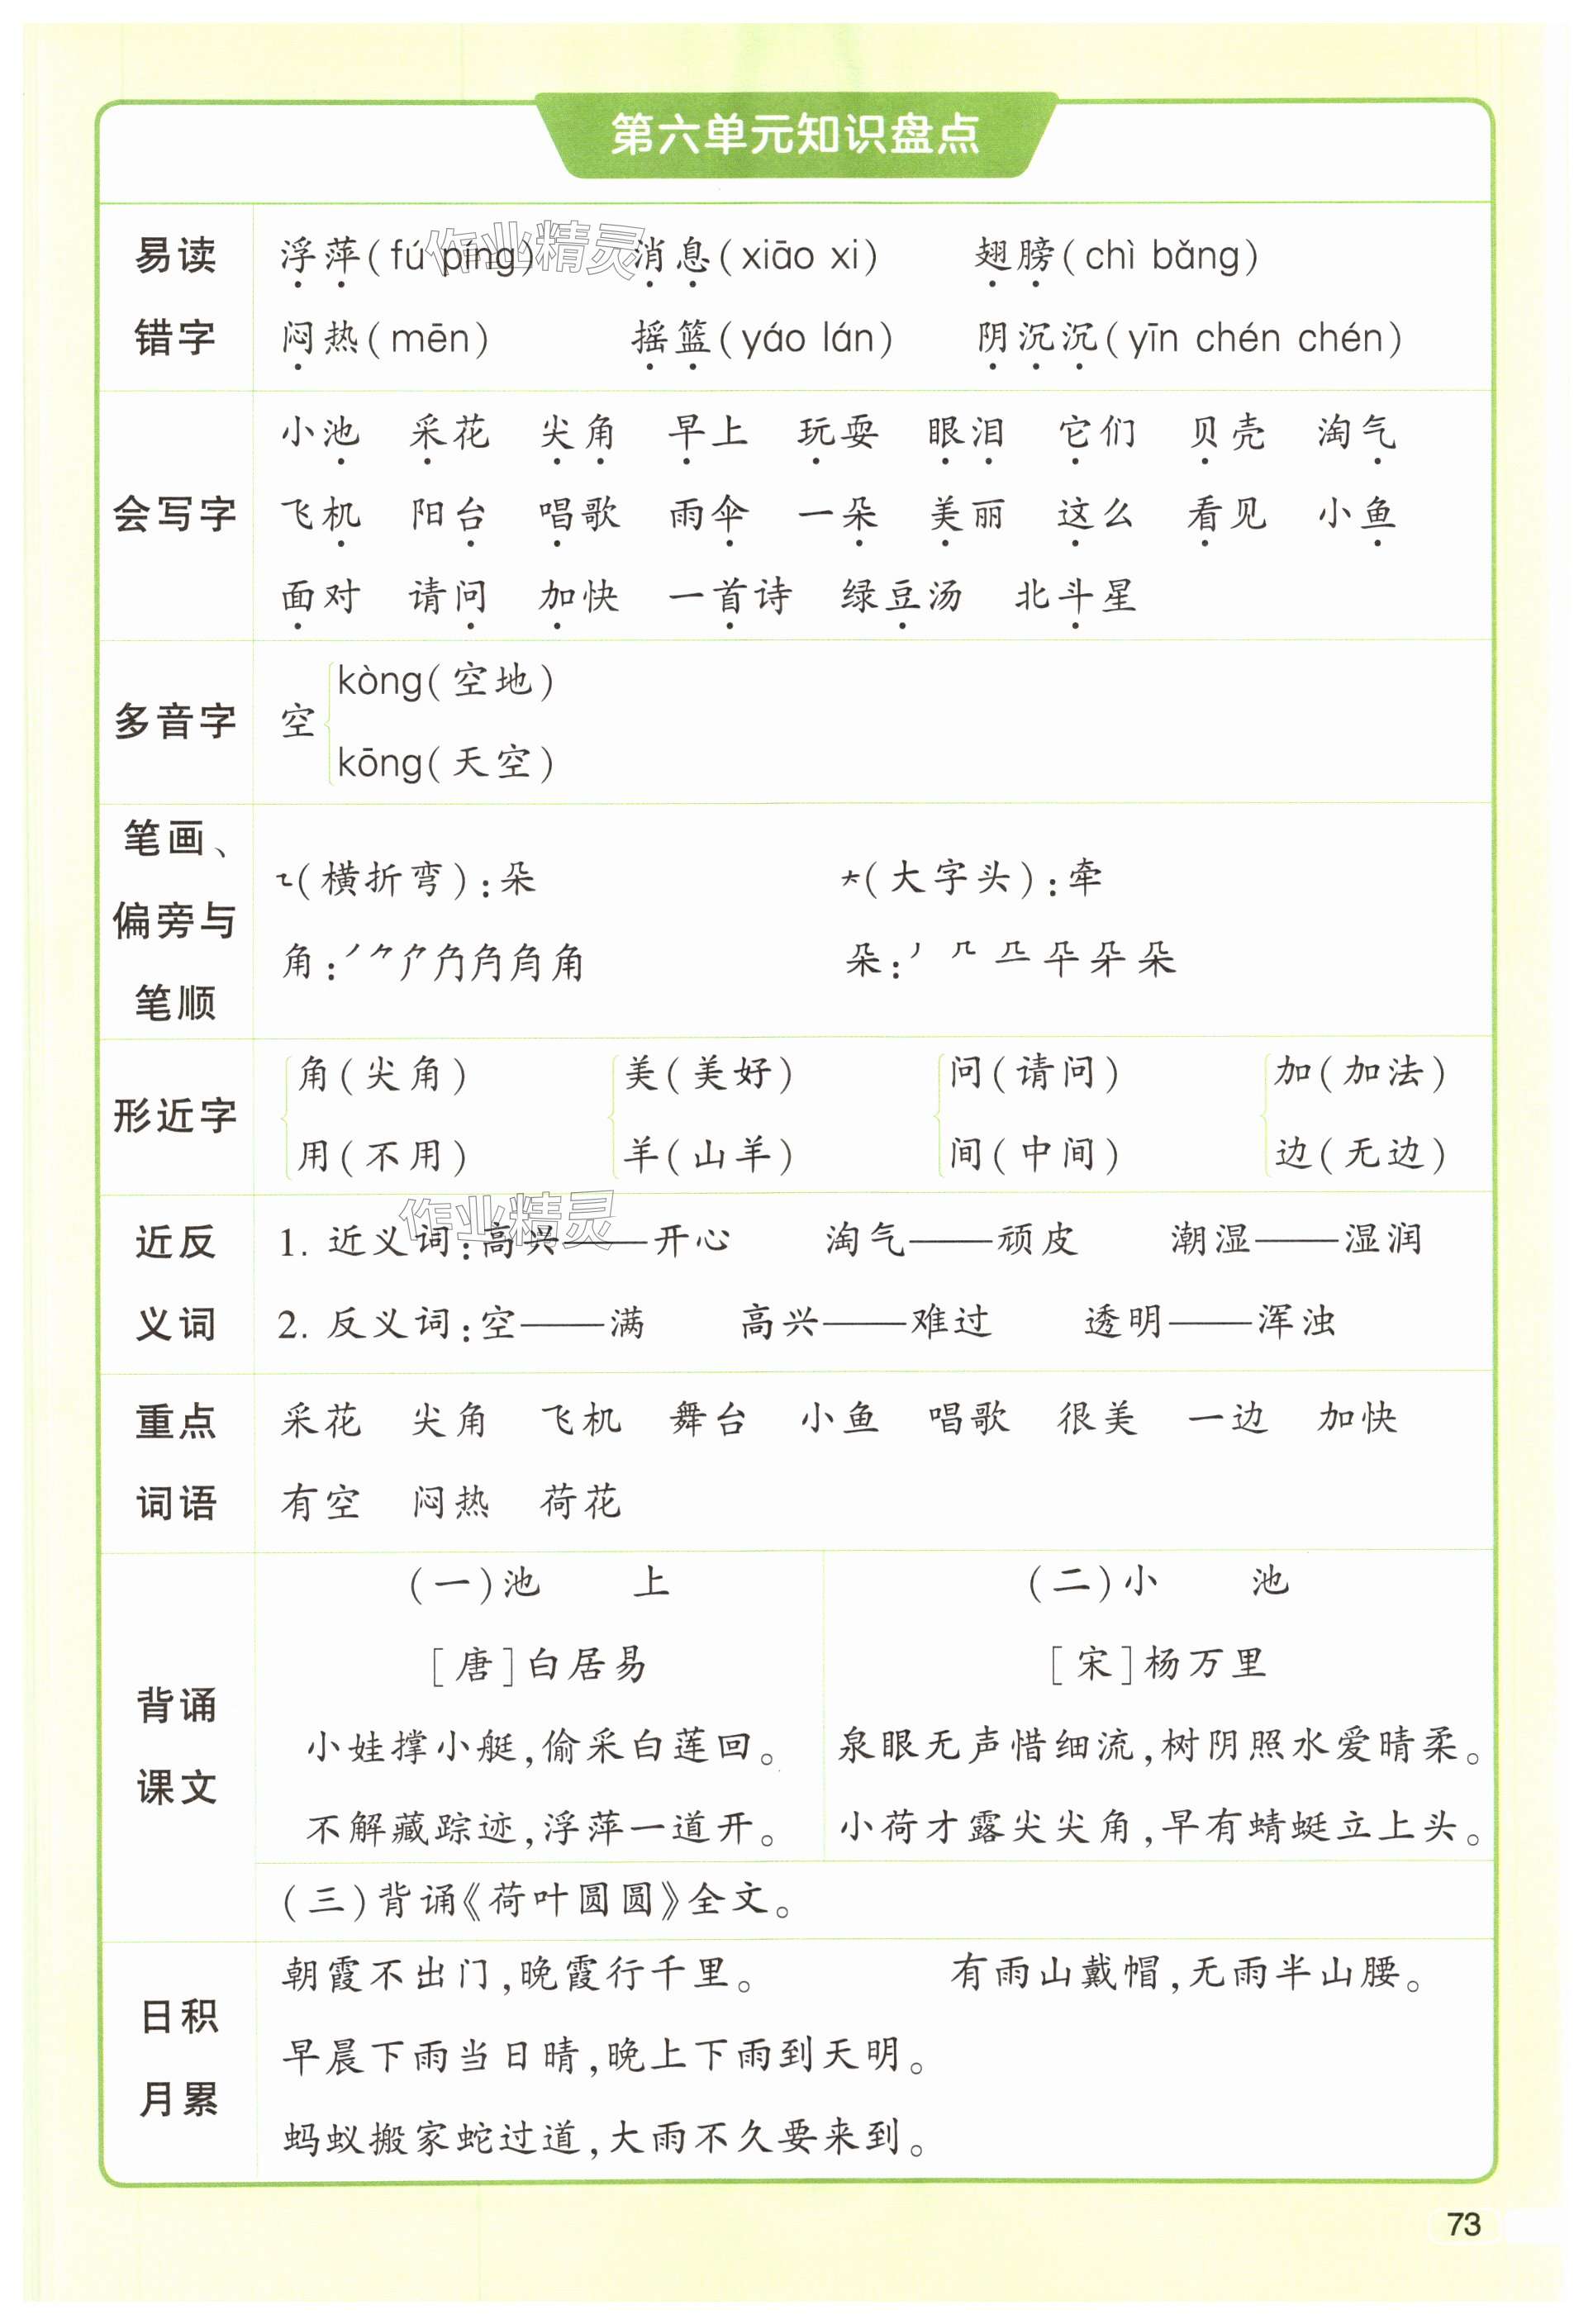 第六单元知识盘点
易读错字
浮萍(fú píng) 消息(xiāo xi) 翅膀(chì bǎng)
闷热(mēn) 摇篮(yáo lán) 阴沉沉(yīn chén chén)
会写字
小池 采花 尖角 早上 玩耍 眼泪 它们 贝壳 淘气
飞机 阳台 唱歌 雨伞 一朵 美丽 这么 看见 小鱼
面对 请问 加快 一首诗 绿豆汤 北斗星
多音字
空
kòng(空地)
kōng(天空)
笔画、偏旁与笔顺
㇍(横折弯):朵 (大字头):牵
角: 角 朵: 朵
形近字
角(尖角) 美(美好) 问(请问) 加(加法)
用(不用) 羊(山羊) 间(中间) 边(无边)
近反义词
1. 近义词:高兴——开心 淘气——顽皮 潮湿——湿润
2. 反义词:空——满 高兴——难过 透明——浑浊
重点词语
采花 尖角 飞机 舞台 小鱼 唱歌 很美 一边 加快
有空 闷热 荷花
背诵课文
(一)池 上
[唐]白居易
小娃撑小艇,偷采白莲回。
不解藏踪迹,浮萍一道开。
(二)小 池
[宋]杨万里
泉眼无声惜细流,树阴照水爱晴柔。
小荷才露尖尖角,早有蜻蜓立上头。
(三)背诵《荷叶圆圆》全文。
日积月累
朝霞不出门,晚霞行千里。 有雨山戴帽,无雨半山腰。
早晨下雨当日晴,晚上下雨到天明。
蚂蚁搬家蛇过道,大雨不久要来到。
73
作业精灵
作业精灵